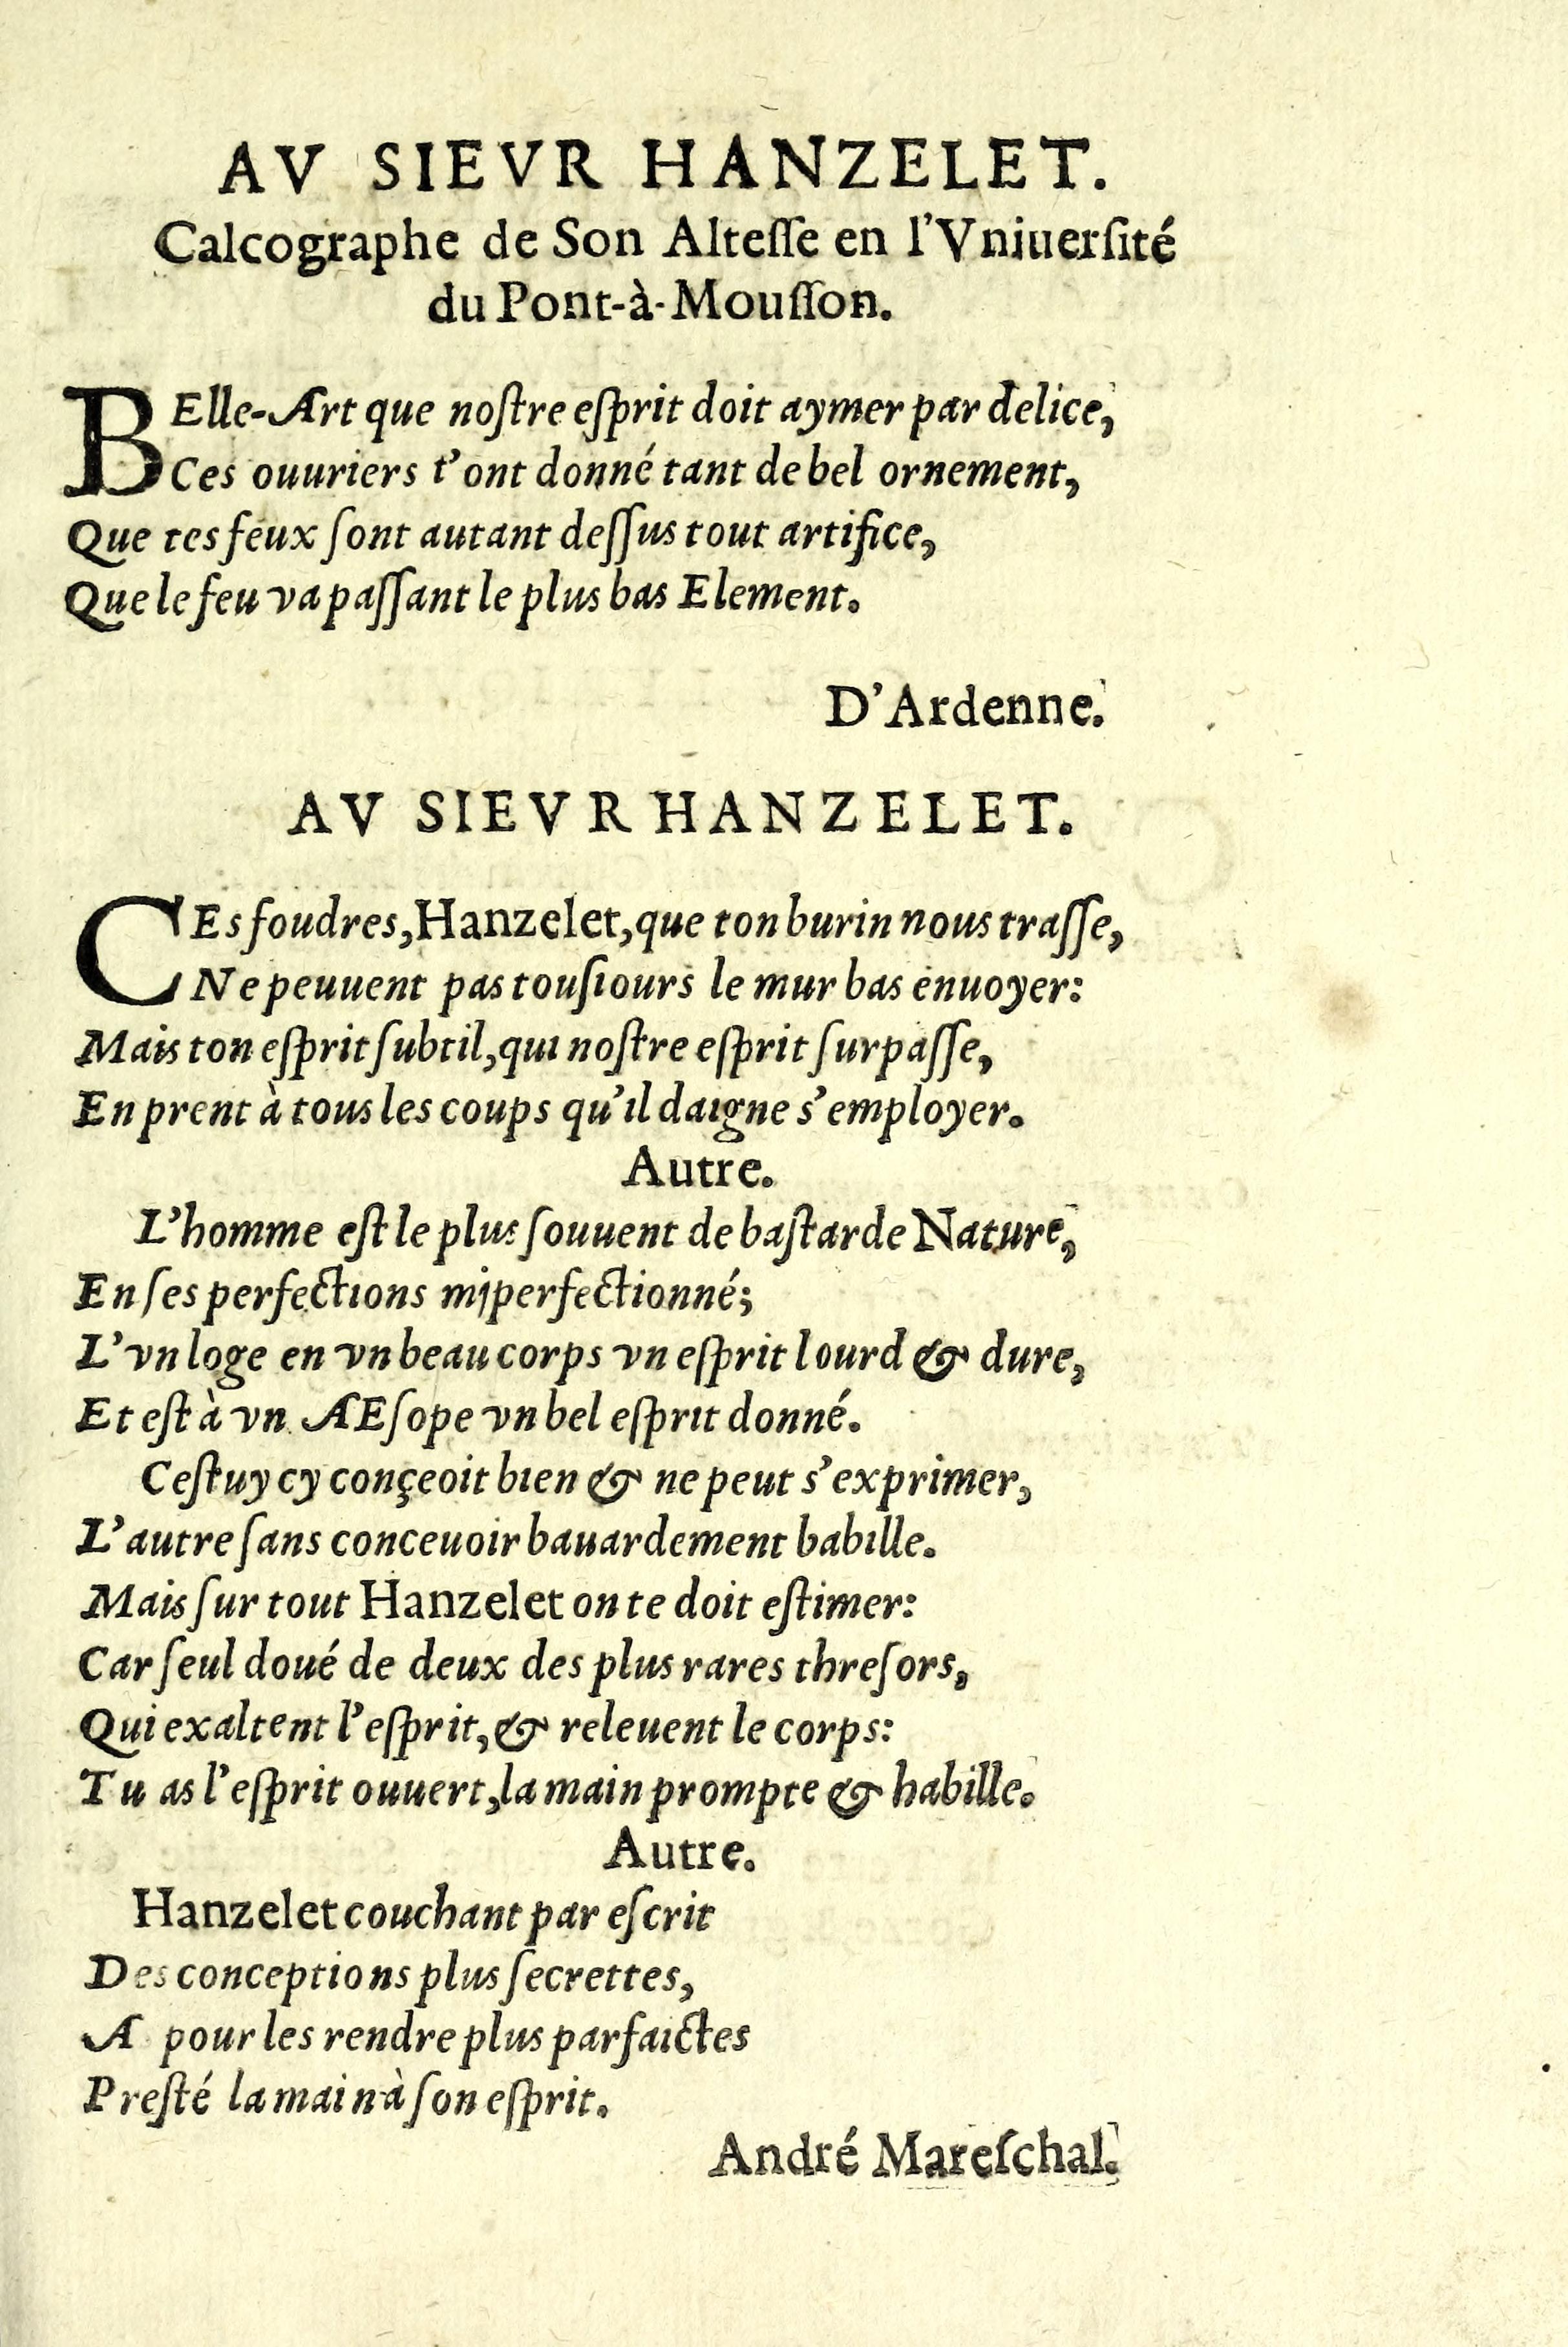 AV SIEVR HANZELET.
Calcographe de Son Alteſſe en l'Vniuerſité
du Pont-à-Mouſſon.
BElle-Art que noſtre eſprit doit aymer par delice,
Ces ouuriers t'ont donné tant de bel ornement,
Que tes feux ſont autant deſſus tout artifice,
Que le feu va paſſant le plus bas Element.
D'Ardenne.
AV SIEVR HANZELET.
CEs foudres, Hanzelet, que ton burin nous traſſe,
Ne peuuent pas touſiours le mur bas enuoyer:
Mais ton eſprit ſubtil, qui noſtre eſprit ſurpaſſe,
En prent à tous les coups qu'il daigne s'employer.
Autre.
L'homme eſt le plus ſouuent de baſtarde Nature,
En ſes perfections mjperfectionné;
L'vn loge en vn beau corps vn eſprit lourd & dure,
Et eſt à vn AEſope vn bel eſprit donné.
Ceſtuy cy conçeoit bien & ne peut s'exprimer,
L'autre ſans conceuoir bauardement babille.
Mais ſur tout Hanzelet on te doit eſtimer:
Car ſeul doué de deux des plus rares threſors,
Qui exaltent l'eſprit, & releuent le corps:
Tu as l'eſprit ouuert, la main prompte & habille.
Autre.
Hanzelet couchant par eſcrit
Des conceptions plus ſecrettes,
A pour les rendre plus parfaictes
Preſté la main à ſon eſprit.
André Mareſchal.